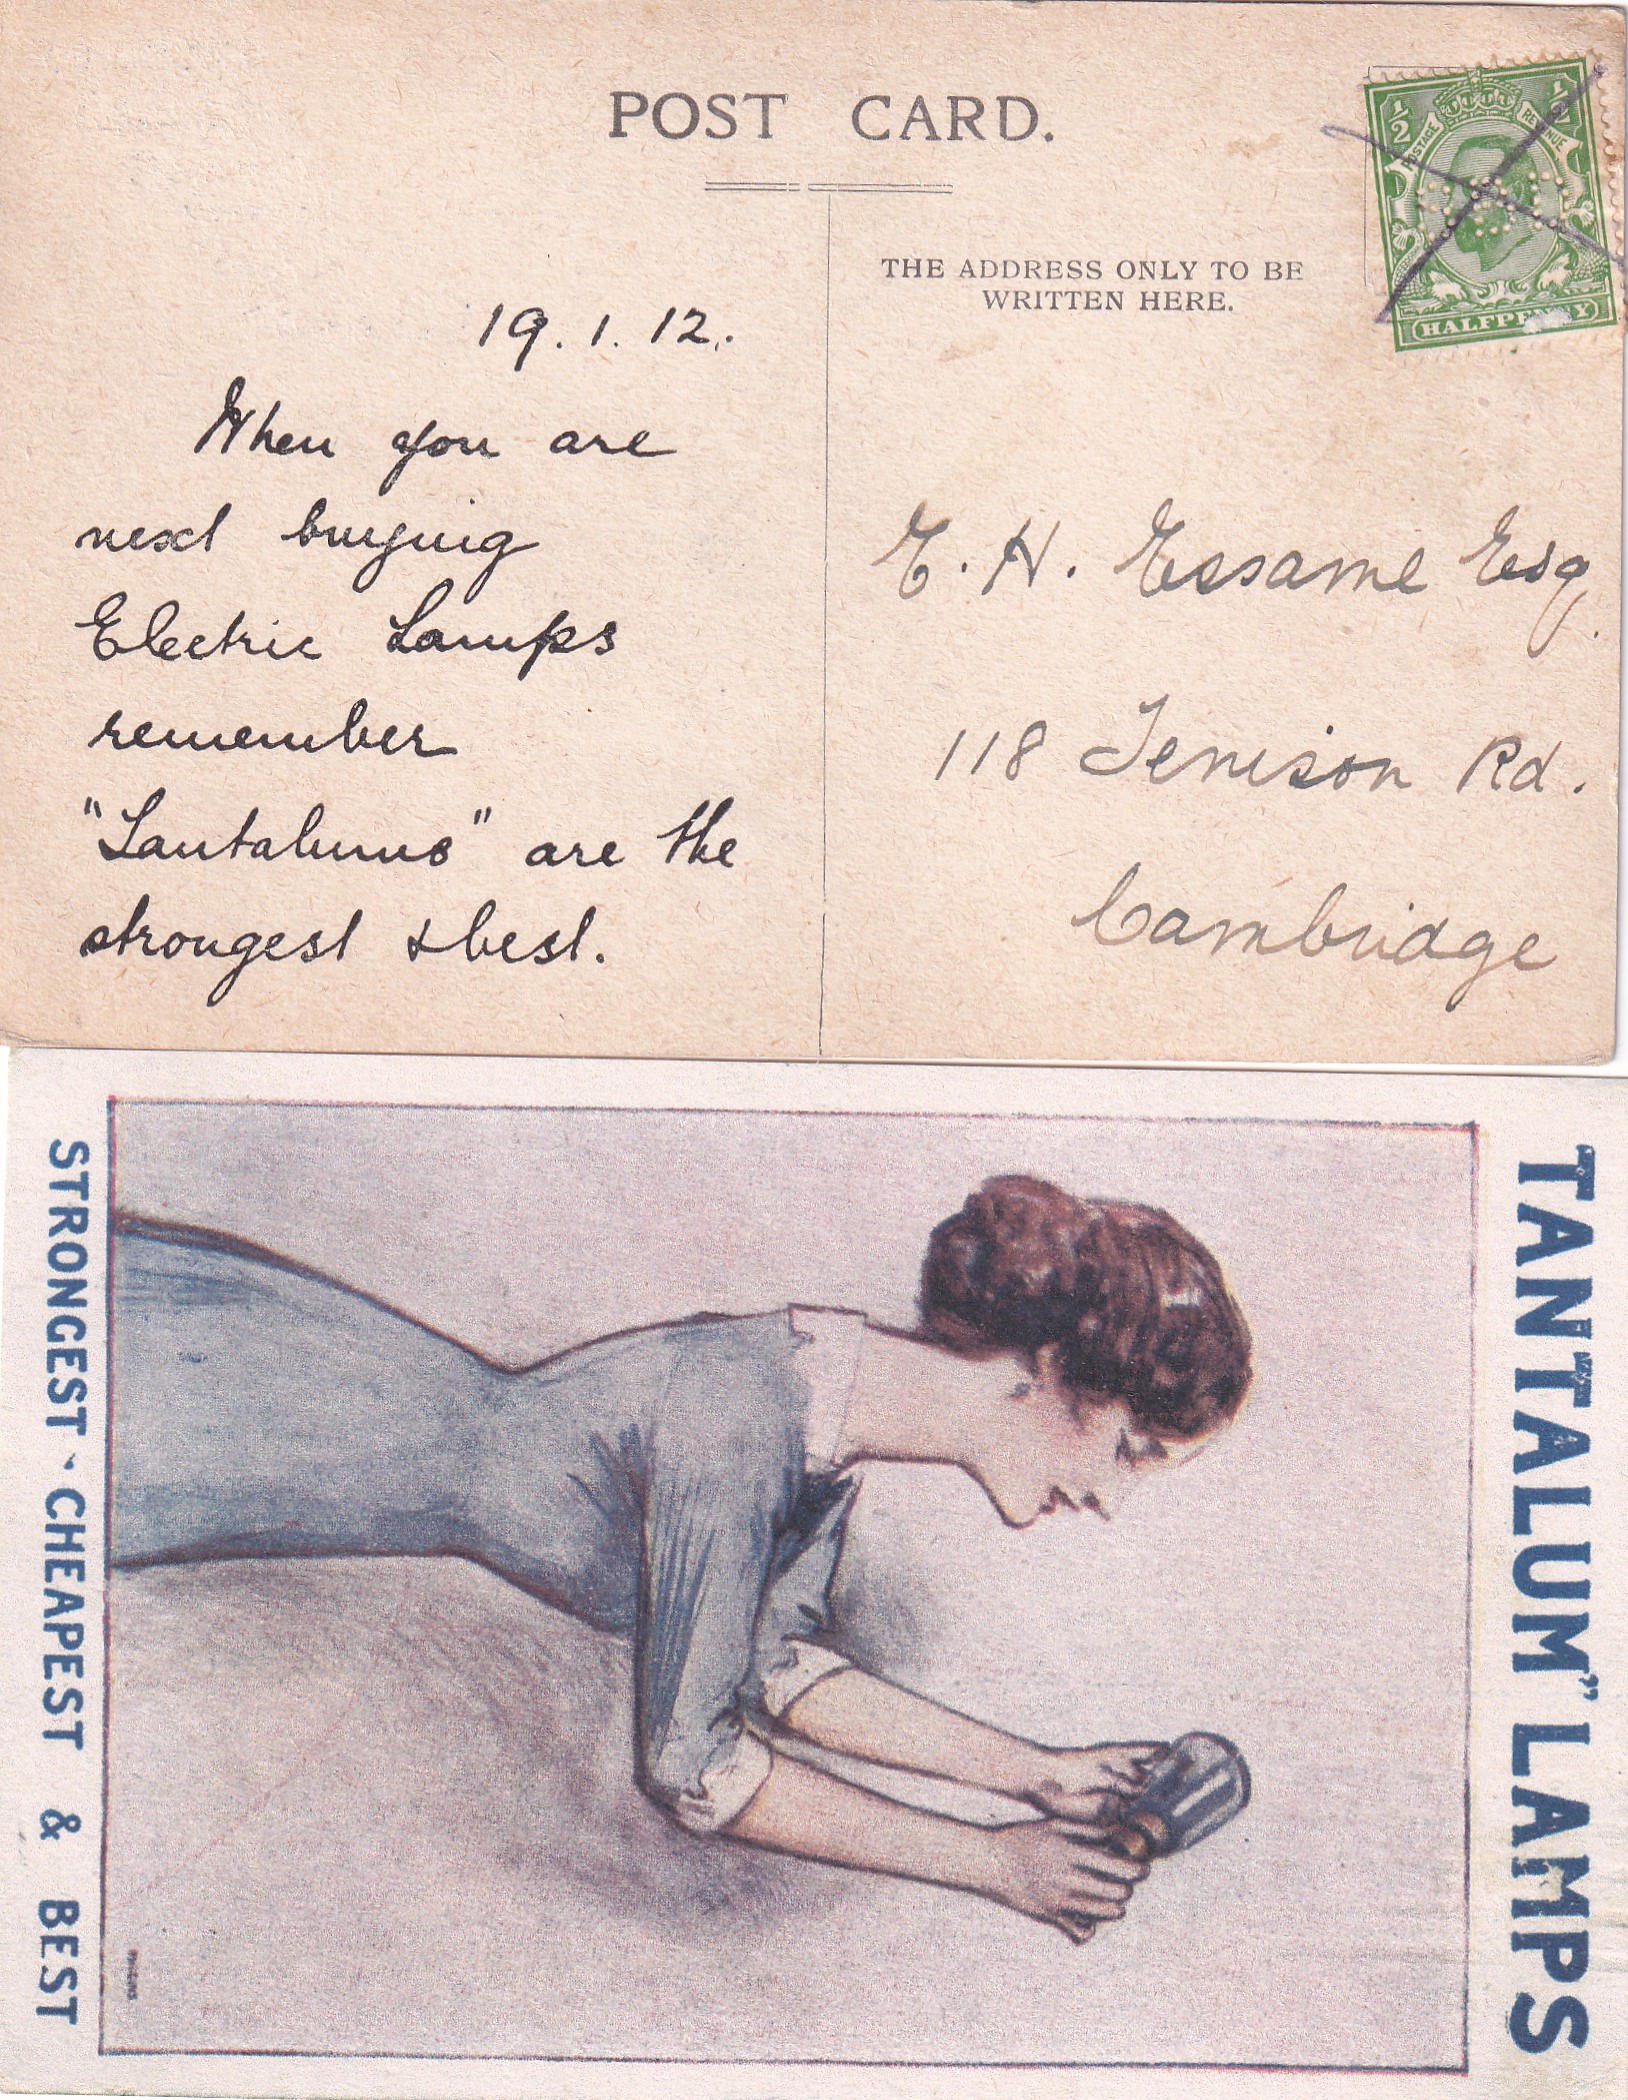 POST CARD.
THE ADDRESS ONLY TO BE
WRITTEN HERE.
1/2
POSTAGE
REVENUE
HALFPENNY
19.1.12.
When you are
next buying
Electric Lamps
remember
"Tantalums" are the
strongest & best.
E. H. Essame Esq.
118 Tenison Rd.
Cambridge
"TANTALUM" LAMPS
STRONGEST · CHEAPEST & BEST